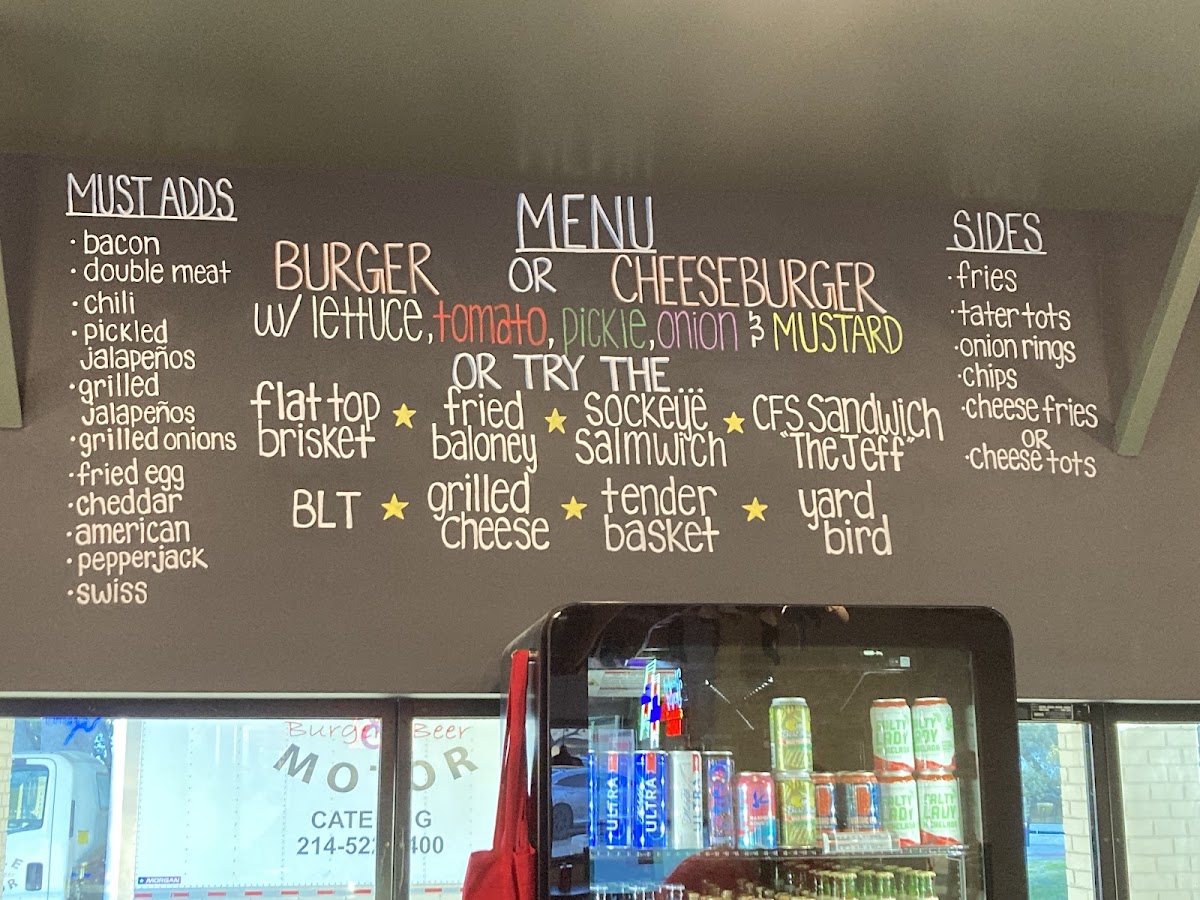 MUST ADDS
· bacon
· double meat
· chili
· pickled
jalapeños
· grilled
jalapeños
· grilled onions
· fried egg
· cheddar
· american
· pepperjack
· swiss
MENU
BURGER OR CHEESEBURGER
w/ lettuce, tomato, pickle, onion & MUSTARD
OR TRY THE...
flat top ★ fried ★ sockeye ★ CFS Sandwich
brisket baloney salmwich "The Jeff"
BLT ★ grilled ★ tender ★ yard
cheese basket bird
SIDES
· fries
· tater tots
· onion rings
· chips
· cheese fries
OR
· cheese tots
Burger Beer
MOTOR
CATE G
214-52 400
MORGAN
ULTRA
ULTRA